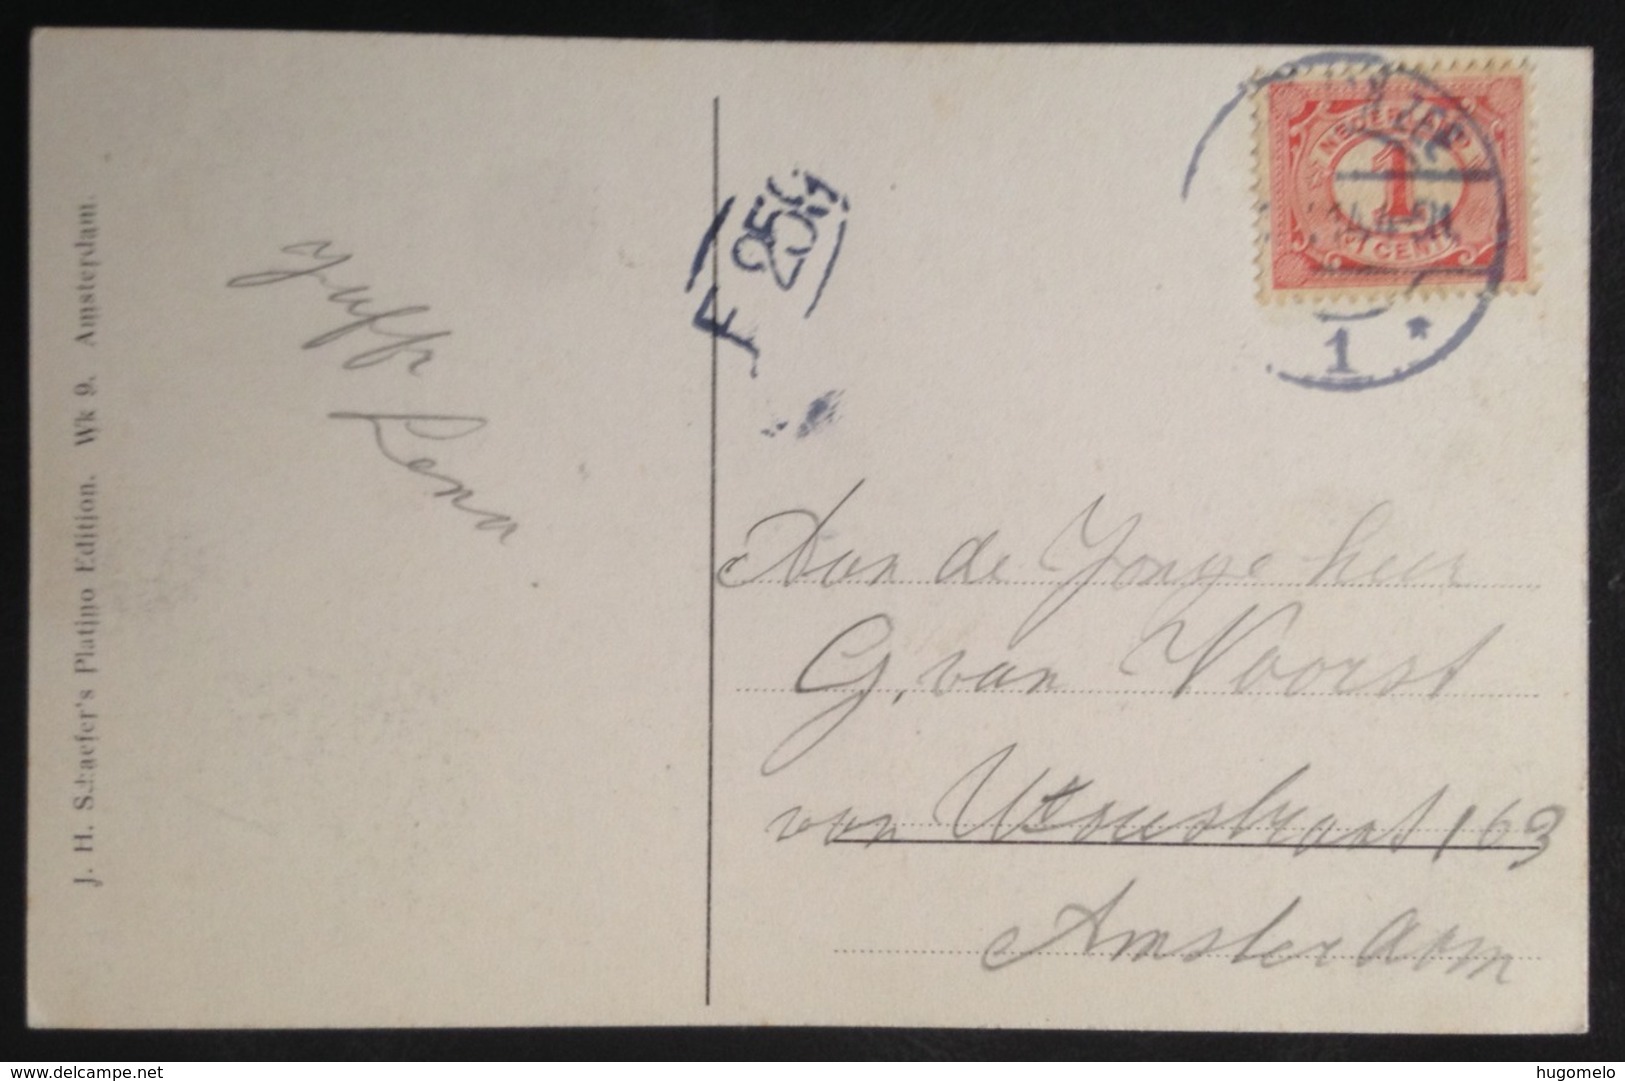 J. H. Schaefer's Platino Edition. Wk 9. Amsterdam.
Juffr
Lena
F 256
NEDERLAND
1
CENT
1 *
Aan de Jonge heer
G. van Voorst
van 163
Amsterdam
www.delcampe.net
hugomelo